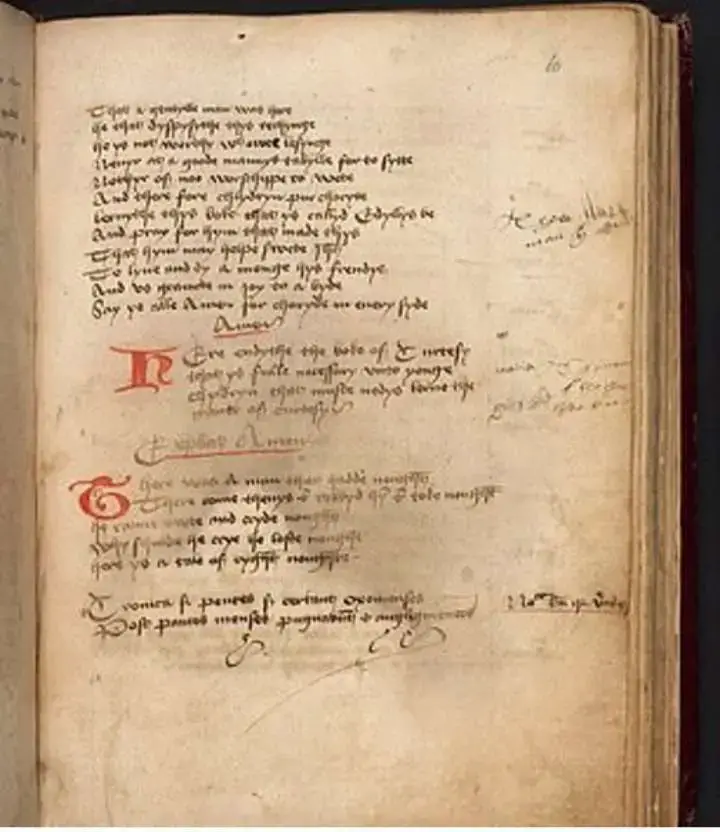 That a gentylle man was here
he that dyspysythe thys techynge
he ys not worthy w owte lesynge
Nevyr at a goode mannys tabylle for to sytte
Nothyr of not worschippe to wete
And there fore chyldryn pur charyte
lernythe thys boke that ys callyd Edyllys be
And pray for hym that made thys
That hym may helpe swete
To lyve and dy a monge hys frendys
And us graunte in joy to a byde
Say ye alle Amen for charyte in every syde
Amen
Here endythe the boke of Curtesy
that ys fulle necessary unto yonge
chyldryn that muste nedys lerne the
maner of curtesy
Explicit Amen
There was a man that hadde nought
There come thevys & robbyd & toke nought
he ranne owte and cryde nought
Why schulde he crye he loste nought
here ys a tale of ryght nought
Cronica si penses si certant Oxonienses
Post paucos menses